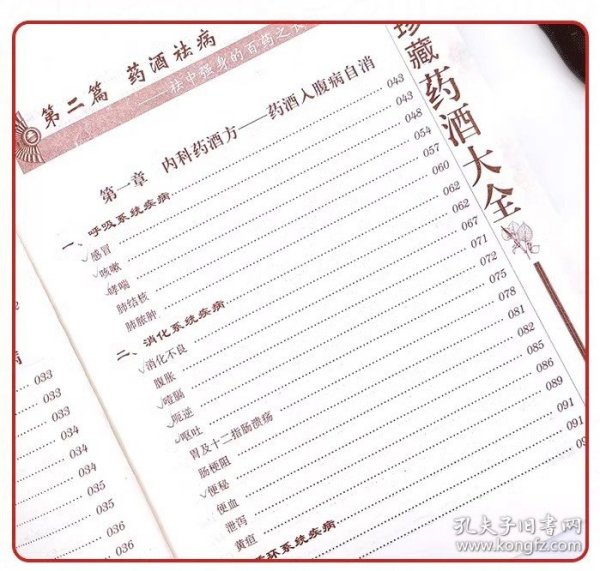 第二篇 药酒祛病
——祛中强身的百药之长
第一章 内科药酒方——药酒入腹病自消
一、呼吸系统疾病 043
感冒 043
咳嗽 048
哮喘 054
肺结核 057
肺脓肿 060
二、消化系统疾病 062
消化不良 062
腹胀 067
噎膈 071
呃逆 072
呕吐 075
胃及十二指肠溃疡 078
肠梗阻 081
便秘 082
便血 085
泄泻 086
黄疸 089
环系统疾病 091
091
珍藏药酒大全
病
033
033
033
034
034
034
035
036
036
孔夫子旧书网
www.kongfz.com